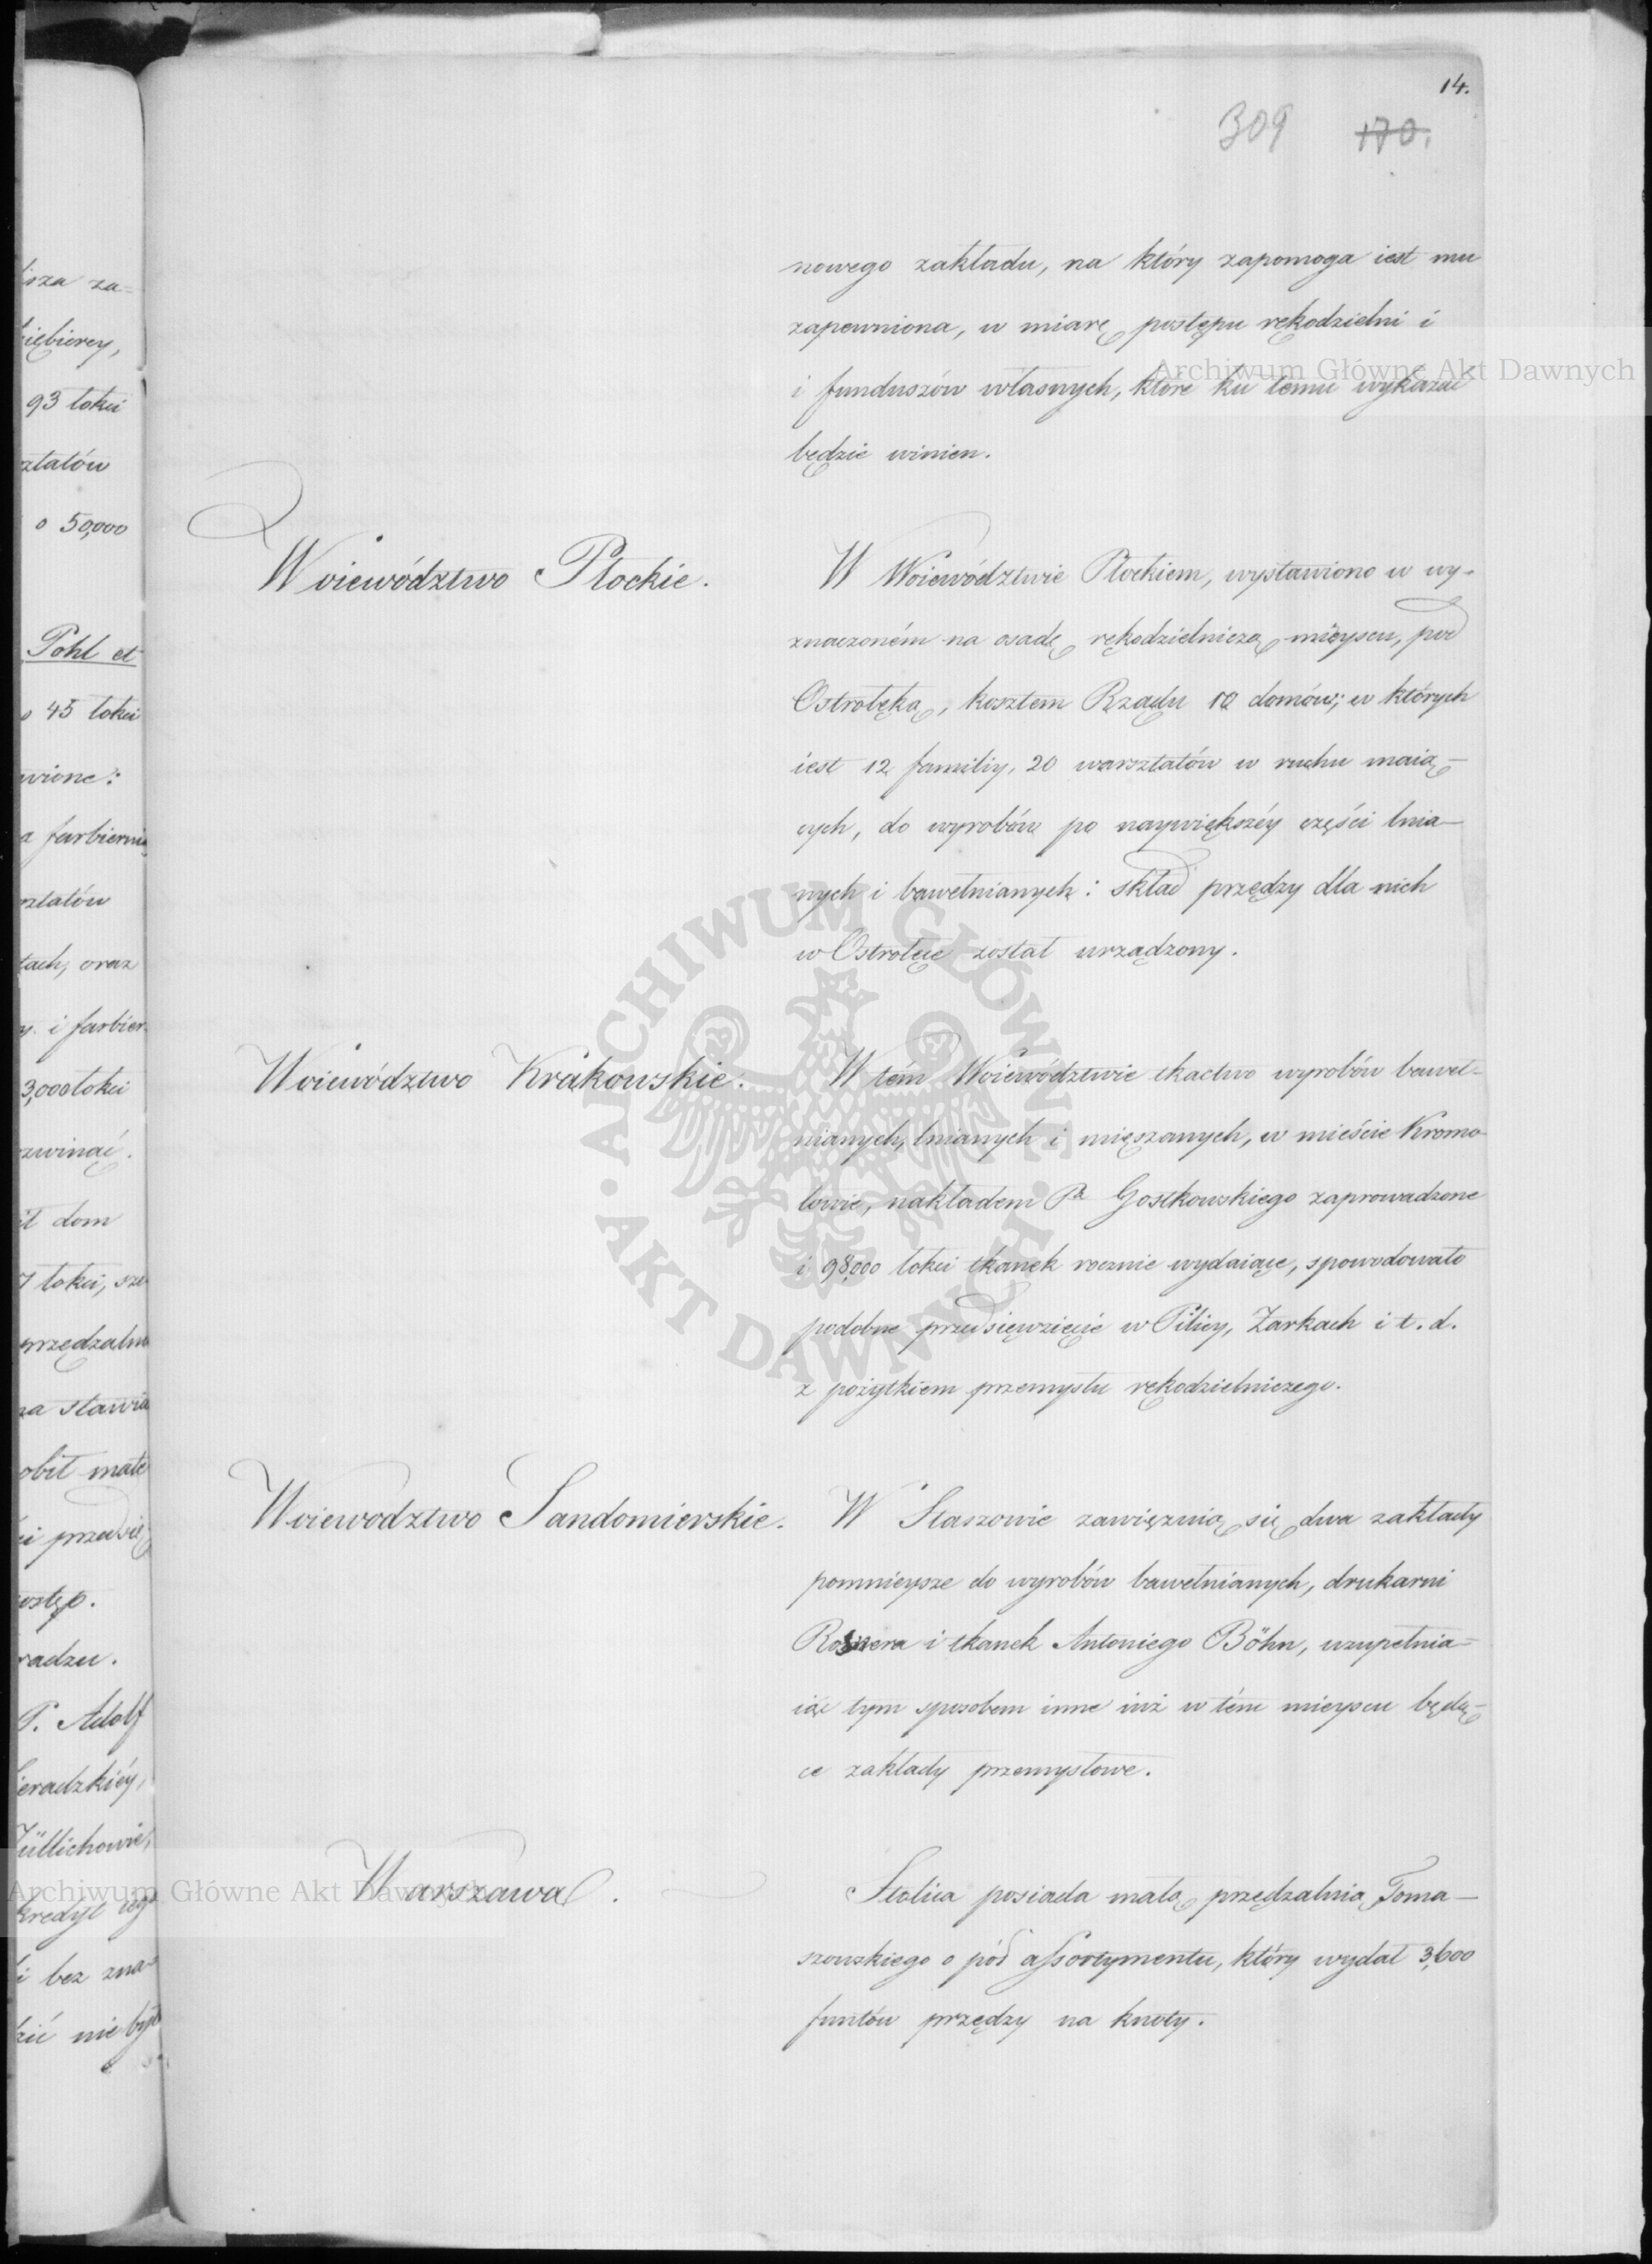 14.
309 170.
nowego zakładu, na który zapomoga iest mu
zapewniona, w miarę postępu rękodzielni i
i funduszów własnych, które ku temu wykazać
będzie winien.
Woiewództwo Płockie.
W Woiewództwie Płockiem, wystawiono w wy-
znaczoném na osadę rękodzielniczą mieyscu, pod
Ostrołęką, kosztem Rządu 10 domów; w których
iest 12 familiy, 20 warsztatów w ruchu maią-
cych, do wyrobów po naywiększéy części lnia-
nych i bawełnianych: skład przędzy dla nich
w Ostrołęce został urządzony.
Woiewództwo Krakowskie.
W tém Woiewództwie tkactwo wyrobów baweł-
nianych, lnianych i mięszanych, w mieście Kromo-
łowie, nakładem Pa Gostkowskiego zaprowadzone
i 98,000 łokci tkanek rocznie wydaiące, spowodowało
podobne przedsięwzięcie w Pilicy, Żarkach i t. d.
z pożytkiem przemysłu rękodzielniczego.
Woiewodztwo Sandomierskie.
W Staszowie zawięzuią się dwa zakłady
pomnieysze do wyrobów bawełnianych, drukarni
Rosnera i tkanek Antoniego Böhn, uzupełnia-
iąc tym sposobem inne iuż w tém mieyscu będą-
ce zakłady przemysłowe.
Warszawa.
Stolica posiada małą przędzalnią Toma-
szewskiego o pół assortymentu, który wydał 3,600
funtów przędzy na knoty.
za-
93 łokci
o 50,000
Pohl et
45 łokci
oraz
i farbier-
3,000 łokci
dom
7 łokci,
P. Adolf
kredyt
bez zna-
nie był
Archiwum Główne Akt Dawnych
ARCHIWUM GŁÓWNE
AKT DAWNYCH
Archiwum Główne Akt Dawnych